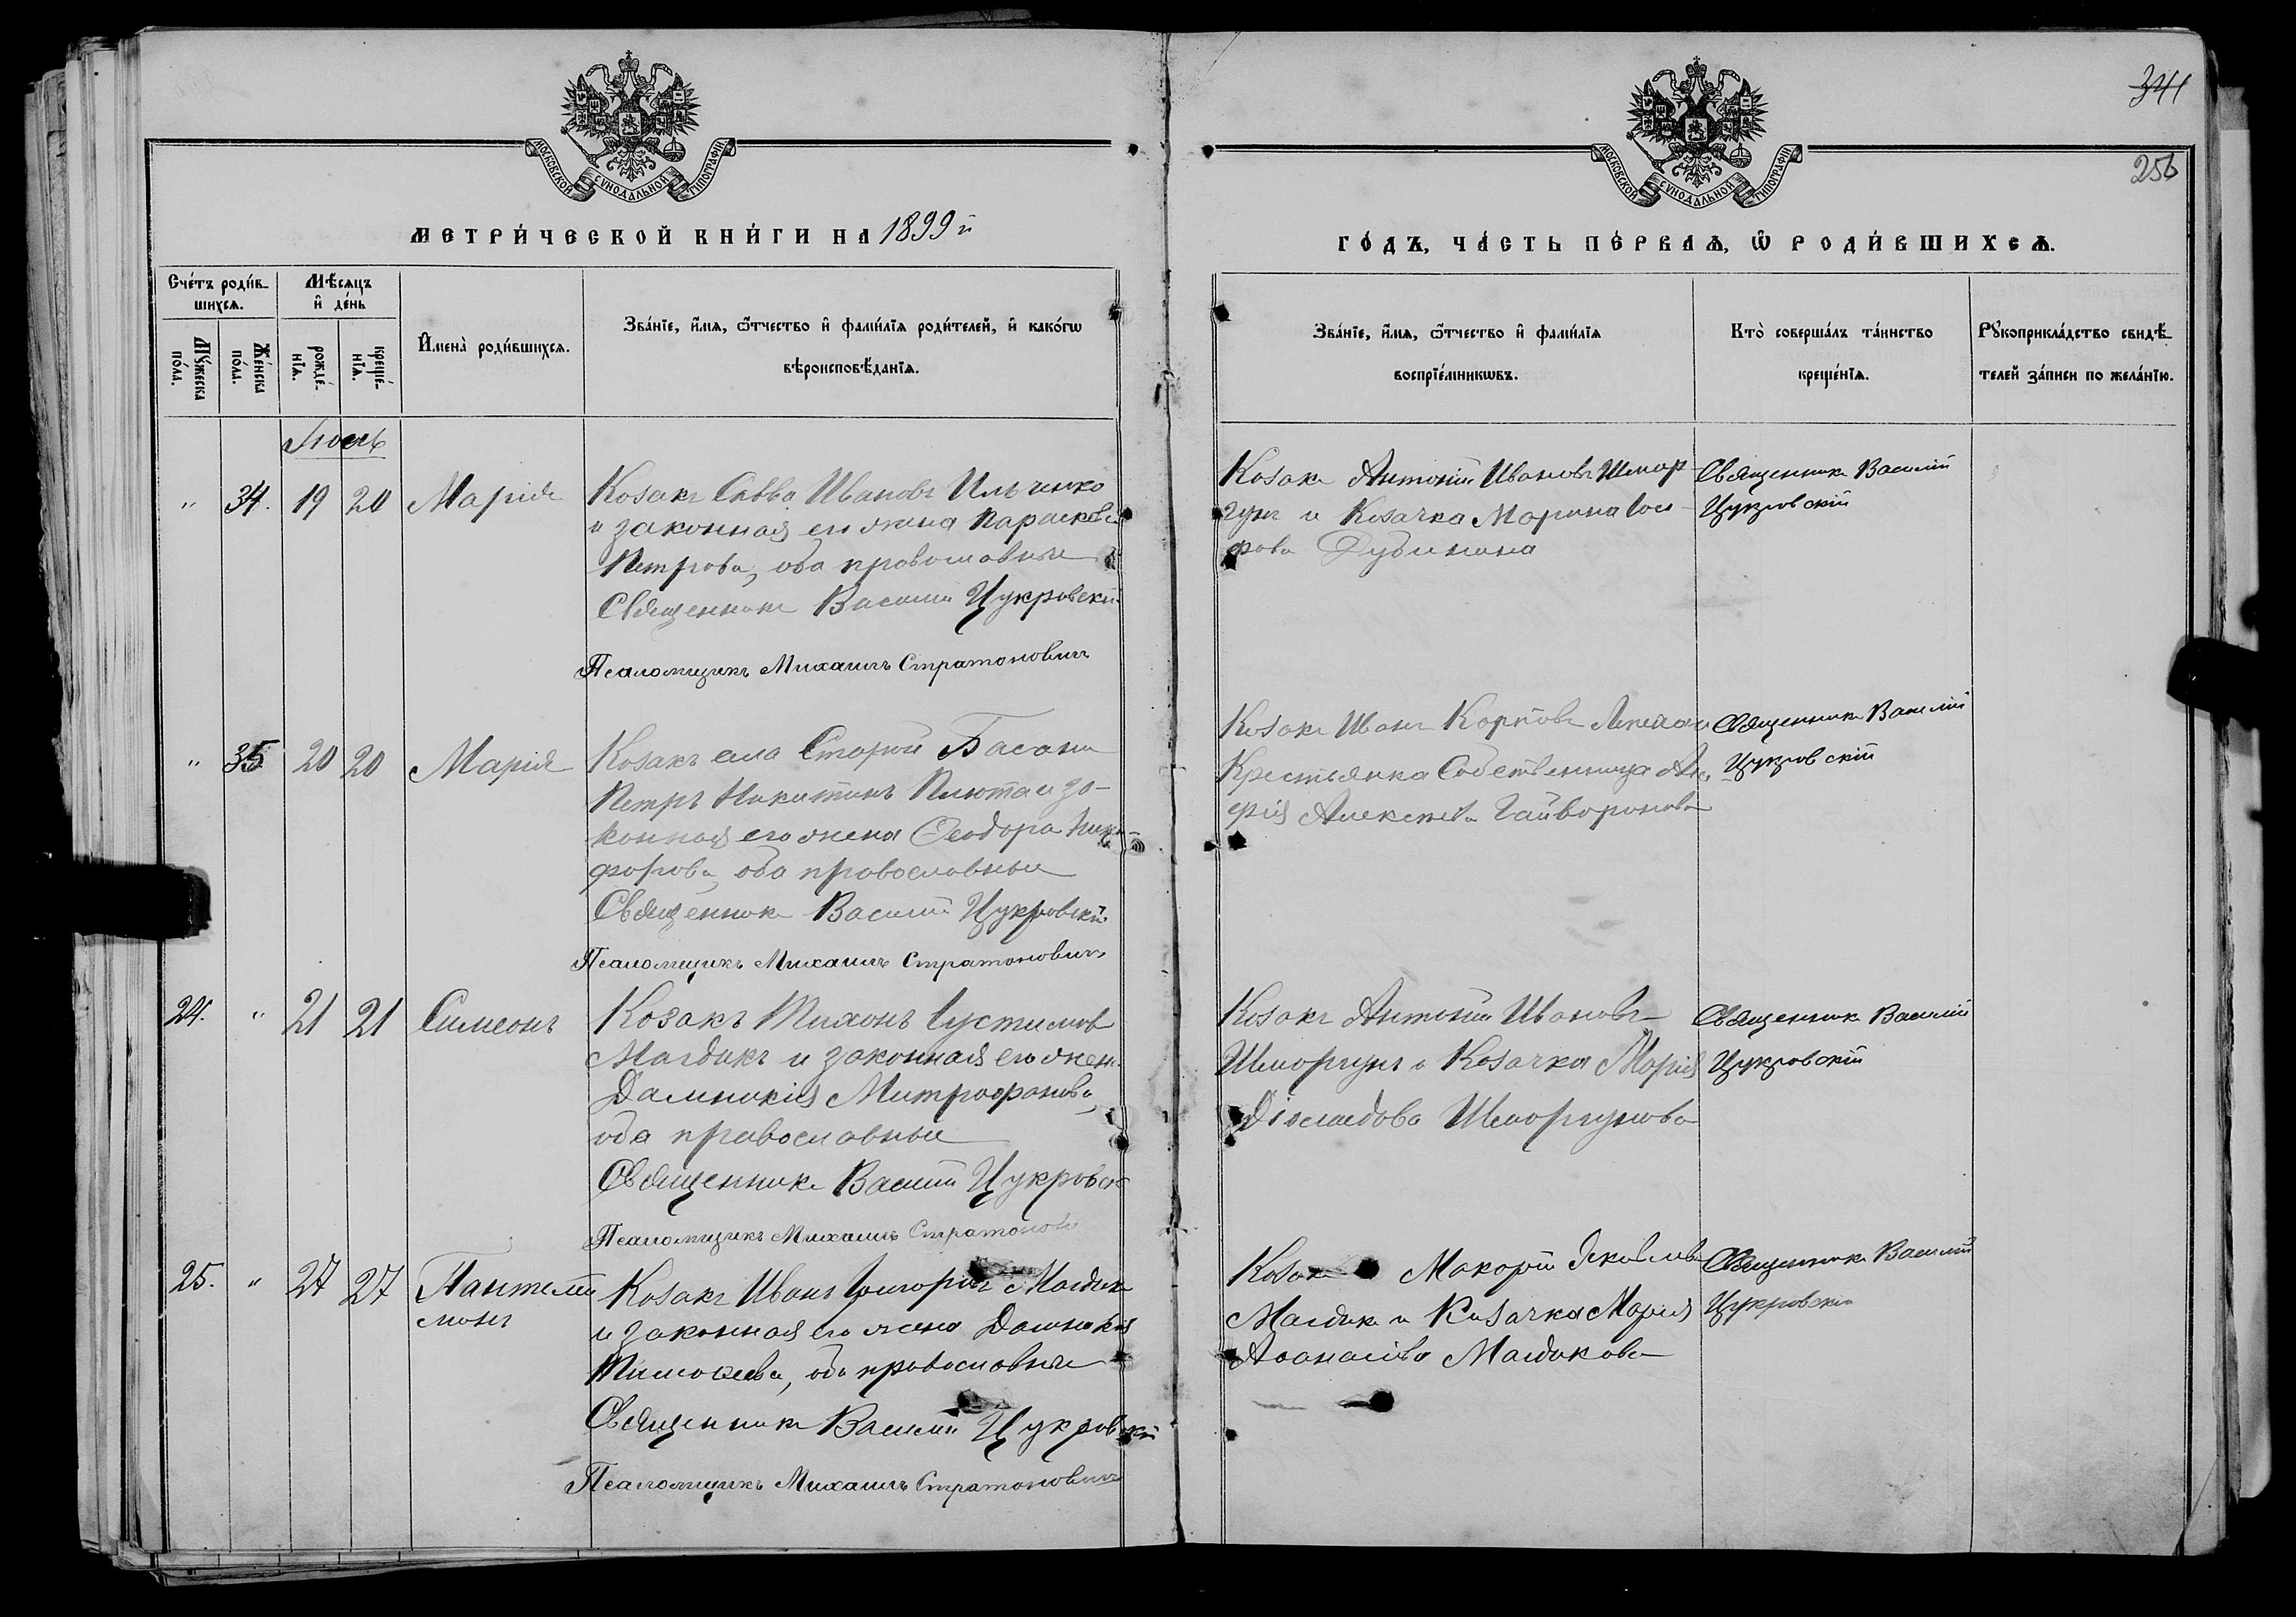 341
256
МОСКОВСКОЙ СѴНОДАЛЬНОЙ ТИПОГРАФІИ
МОСКОВСКОЙ СѴНОДАЛЬНОЙ ТИПОГРАФІИ
МЕТРИ́ЧЕСКОЙ КНИ́ГИ НА 1899 й
ГО́ДЪ, ЧА́СТЬ ПЕ́РВАѦ, Ѡ РОДИ́ВШИХСѦ.
Сче́тъ роди́в-
шихсѧ.
Мꙋ́жеска
по́ла.
Же́нска
по́ла.
Мѣ́сѧцъ
и҆ де́нь
рожде́-
нїѧ.
креще́-
нїѧ.
И҆мена̀ роди́вшихсѧ.
Зва́нїе, и҆́мѧ, ѻ҆́тчество и҆ фамилїѧ роди́телей, и҆ како́гѡ
вѣроисповѣ́данїѧ.
Зва́нїе, и҆́мѧ, ѻ҆́тчество и҆ фами́лїѧ
воспрїе́мникѡвъ.
Кто̀ соверша́лъ та́инство
креще́нїѧ.
Рꙋкоприкла́дство свидѣ́-
телей за́писи по жела́нїю.
Іюль
" 34. 19 20 Марія
Козакъ Савва Ивановъ Ильченко
и законная его жена Параскева
Петрова, оба православные
Священникъ Василій Цукровскій
Псаломщикъ Михаилъ Стратоновичъ
Козакъ Антоній Ивановъ Шмор-
гунъ и Козачка Марина
Дубинина
Священникъ Василій
Цукровскій
" 35 20 20 Марія
Козакъ села Старой Басани
Петръ Никитинъ Плюта и за-
конная его жена Ѳеодора Ники-
форова, оба православные
Священникъ Василій Цукровскій
Псаломщикъ Михаилъ Стратоновичъ
Козакъ Иванъ Карповъ
Крестьянка Собственница
Алексѣева Гайворонова
Священникъ Василій
Цукровскій
24. " 21 21 Симеонъ
Козакъ Тихонъ Іустиновъ
Магдикъ и законная его жена
Домникія Митрофанова,
оба православные
Священникъ Василій Цукровскій
Псаломщикъ Михаилъ Стратонович
Козакъ Антоній Ивановъ
Шморгунъ и Козачка Марія
Діомидова Шморгунова
Священникъ Василій
Цукровскій
25. " 27 27 Пантелей-
монъ
Козакъ Иванъ Григоріевъ Магдикъ
и законная его жена Домникія
Тимоѳеева, оба православные
Священникъ Василій Цукровскій
Псаломщикъ Михаилъ Стратоновичъ
Козакъ Макарій Яковлевъ
Магдикъ и Козачка Марія
Аѳанасіева Магдикова
Священникъ Василій
Цукровскій